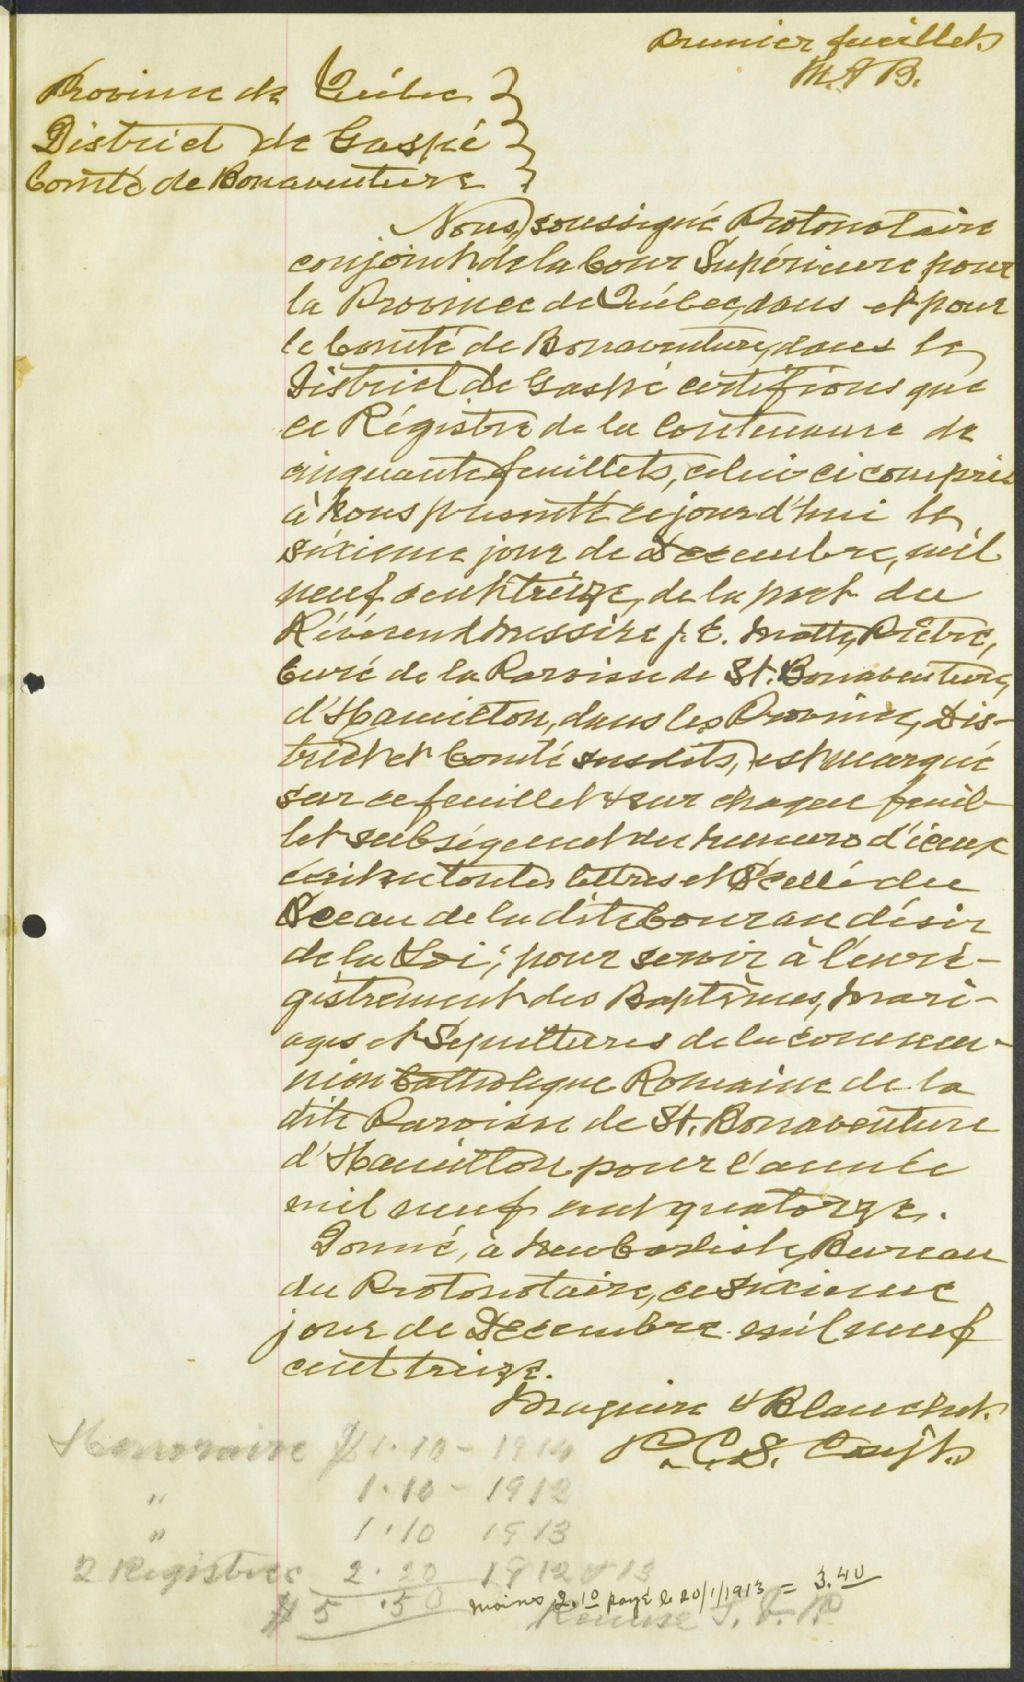 Premier feuillet
M. & B.
Province de Québec }
District de Gaspé }
Comté de Bonaventure }
Nous, soussigné Protonotaire
conjoint de la Cour Supérieure pour
la Province de Québec, dans et pour
le Comté de Bonaventure, dans le
District de Gaspé certifions que
ce Régistre de la contenance de
cinquante feuillets, celui ci compris
à Nous présenté ce jourd'hui le
sixième jour de Décembre, mil
neuf cent treize, de la part du
Révérend Messire J. E. Matte, Prêtre,
Curé de la Paroisse de St. Bonaventure
d'Hamilton, dans les Province, Dis-
trict et Comté susdits, est marqué
sur ce feuillet & sur chaque feuil-
let subséquent du numero d'iceux
écrit en toutes lettres et Scellé du
Sceau de la dite Cour au désir
de la Loi; pour servir à l'enré-
gistrement des Baptêmes, Mari-
ages et Sépultures de la commu-
nion Catholique Romaine de la
dite Paroisse de St. Bonaventure
d'Hamilton pour l'année
mil neuf cent quatorze.
Donné, à New Carlisle, Bureau
du Protonotaire, ce sixième
jour de Décembre mil neuf
cent treize.
Maguire & Blanchet.
P. C. S. Conjt.
Honoraire $1.10 - 1914
" 1.10 - 1912
" 1.10 1913
2 Régistres 2.20 1912 & 13
$5.50 moins 2.10 payé le 20/1/1913 = 3.40
Remise